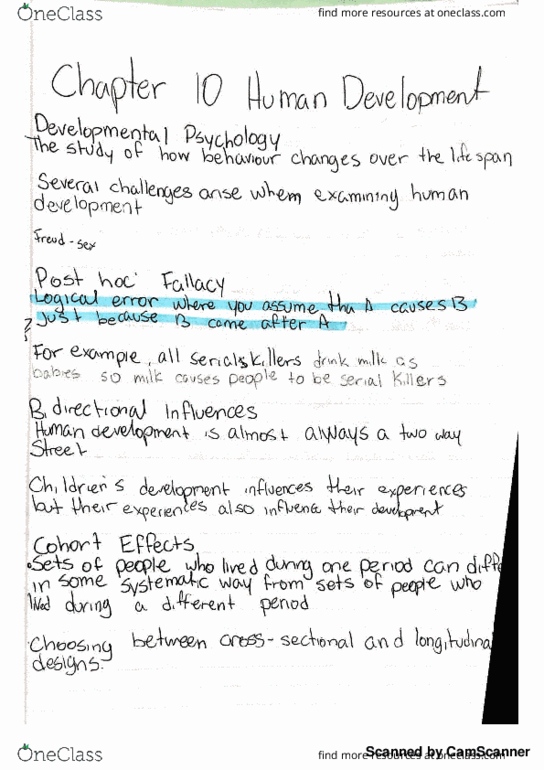 OneClass
find more resources at oneclass.com
Chapter 10 Human Development
Developmental Psychology
The study of how behaviour changes over the lifespan
Several challenges arise when examining human
development
Freud - sex
Post hoc Fallacy
Logical error where you assume tha A causes B
just because B came after A
For example, all serial killers drink milk as
babies so milk causes people to be serial killers
Bidirectional Influences
Human development is almost always a two way
Street
Children's development influences their experiences
but their experiences also influence their development
Cohort Effects
Sets of people who lived during one period can diffe
in some systematic way from sets of people who
lived during a different period
Choosing between cross-sectional and longitudina
designs.
OneClass
find more resources at oneclass.com
Scanned by CamScanner